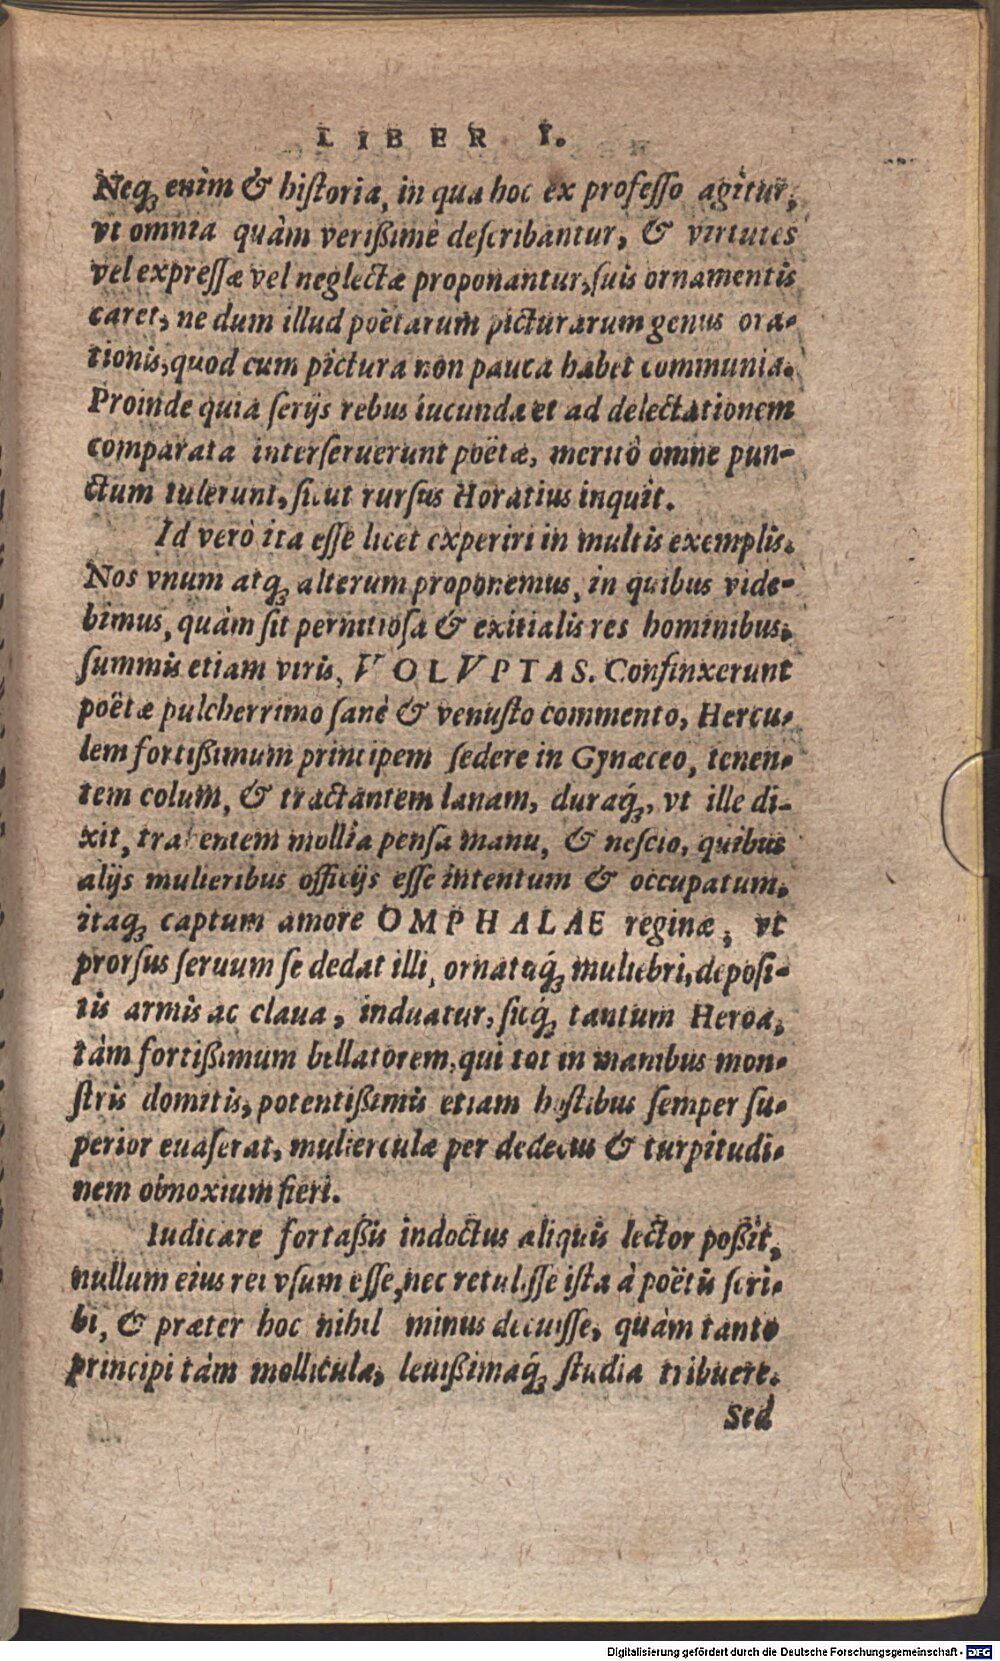 LIBER I.
Neqꝫ enim & hiſtoria, in qua hoc ex profeſſo agitur,
vt omnia quàm verißimè deſcribantur, & virtutes
vel expreſſæ vel neglectæ proponantur, ſuis ornamentis
caret, ne dum illud poëtarum picturarum genus ora-
tionis, quod cum pictura non pauca habet communia.
Proinde quia ſerijs rebus iucunda et ad delectationem
comparata interſeruerunt poëtæ, meritò omne pun-
ctum tulerunt, ſicut rurſus Horatius inquit.
Id verò ita eſſe licet experiri in multis exemplis.
Nos vnum atqꝫ alterum proponemus, in quibus vide-
bimus, quàm ſit pernitioſa & exitialis res hominibus,
ſummis etiam viris, VOLVPTAS. Confinxerunt
poëtæ pulcherrimo ſanè & venuſto commento, Hercu-
lem fortißimum principem ſedere in Gynæceo, tenen-
tem colum, & tractantem lanam, duraqꝫ́, vt ille di-
xit, trahentem mollia penſa manu, & neſcio, quibus
alijs mulieribus officijs eſſe intentum & occupatum,
itaqꝫ captum amore OMPHALAE reginæ, vt
prorſus ſeruum ſe dedat illi, ornatuqꝫ́ muliebri, depoſi-
tis armis ac claua, induatur, ſicqꝫ́ tantum Heroa,
tàm fortißimum bellatorem, qui tot in manibus mon-
ſtris domitis, potentißimis etiam hoſtibus ſemper ſu-
perior euaſerat, mulierculæ per dedecus & turpitudi-
nem obnoxium fieri.
Iudicare fortaßis indoctus aliquis lector poßit,
nullum eius rei vſum eſſe, nec retuliſſe iſta à poëtis ſcri-
bi, & præter hoc nihil minus decuiſſe, quàm tanto
principi tàm mollicula, leuißimaqꝫ́ ſtudia tribuere.
Sed
Digitalisierung gefördert durch die Deutsche Forschungsgemeinschaft - DFG